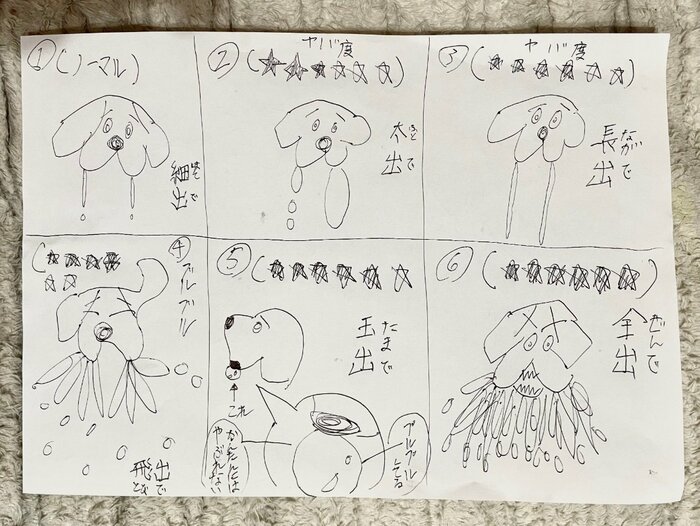 ① (ノーマル)
細出
ほそで
② ヤバ度
(★★☆☆☆☆)
太出
ふとで
③ ヤバ度
(★★★☆☆☆)
長出
ながで
④ (★★★★
☆☆)
ブルブル
飛出
とびで
⑤ (★★★★★☆)
玉出
たまで
これ
かんたんには
やぶれない
プルプル
してる
⑥ (★★★★★★)
全出
ぜんで